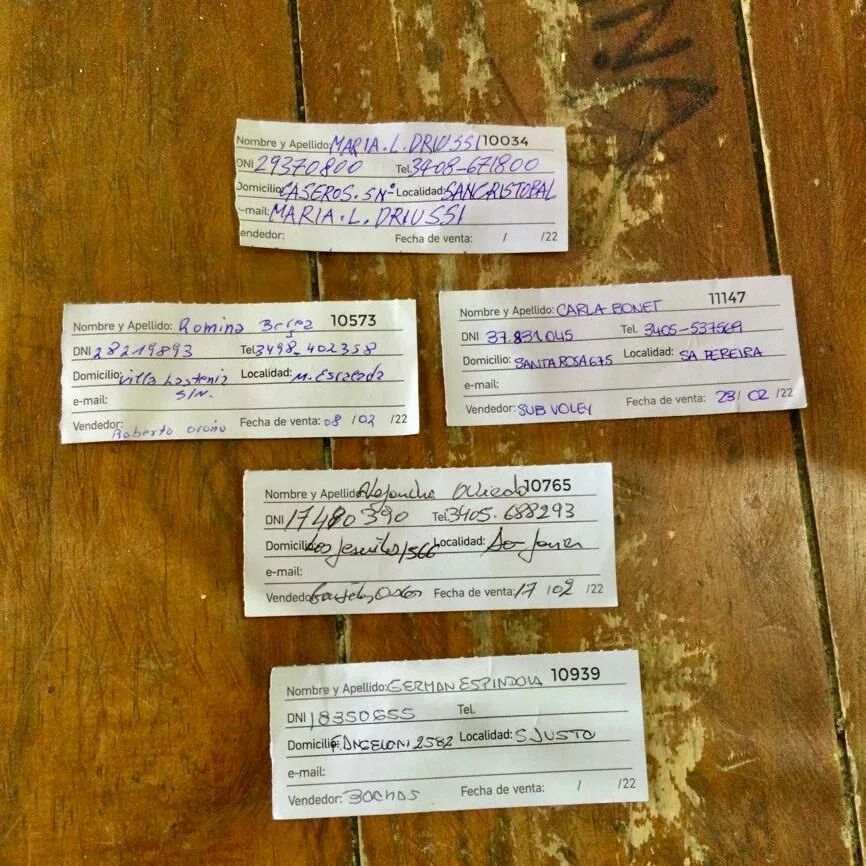 Nombre y Apellido: MARIA. L. DRIUSSI 10034
DNI 29370800 Tel. 3408-671800
Domicilio CASEROS. SNº Localidad: SAN CRISTOBAL
-mail: MARIA. L. DRIUSSI
endedor: Fecha de venta: / /22
Nombre y Apellido: Romina 10573
DNI 28219893 Tel. 3498_402358
Domicilio: Villa Lastenia Localidad: M. Escalada
e-mail: S/N.
Vendedor: Roberto Fecha de venta: 08 / 02 /22
11147
Nombre y Apellido: CARLA BONET
DNI 37.831045 Tel. 3405-537569
Domicilio: SANTA ROSA 675 Localidad: SA PEREIRA
e-mail:
Vendedor: SUB VOLEY Fecha de venta: 23/ 02 /22
Nombre y Apellido Oviedo 10765
DNI 17480390 Tel. 3405-688293
Domicilio: Los Jesuitas Localidad:
e-mail:
Vendedor Fecha de venta: 17 / 02 /22
Nombre y Apellido: GERMAN ESPINDOLA 10939
DNI 18350655 Tel.
Domicilio: F. ANGELONI 2582 Localidad: S JUSTO
e-mail:
Vendedor: BOCHAS Fecha de venta: / /22